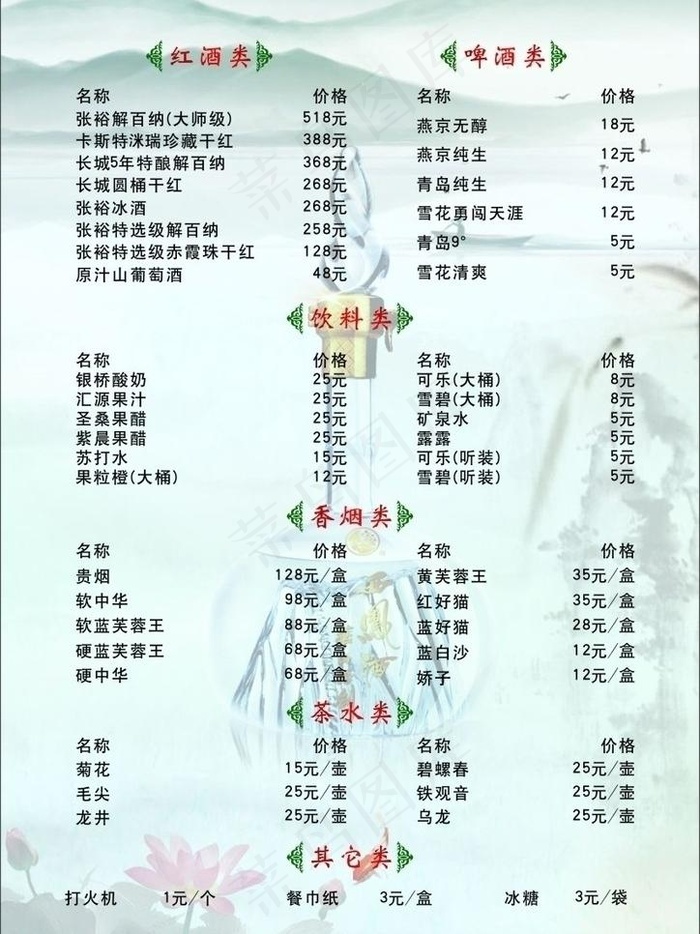 红酒类
名称 价格
张裕解百纳(大师级) 518元
卡斯特洣瑞珍藏干红 388元
长城5年特酿解百纳 368元
长城圆桶干红 268元
张裕冰酒 268元
张裕特选级解百纳 258元
张裕特选级赤霞珠干红 128元
原汁山葡萄酒 48元
啤酒类
名称 价格
燕京无醇 18元
燕京纯生 12元
青岛纯生 12元
雪花勇闯天涯 12元
青岛9° 5元
雪花清爽 5元
饮料类
名称 价格
银桥酸奶 25元
汇源果汁 25元
圣桑果醋 25元
紫晨果醋 25元
苏打水 15元
果粒橙(大桶) 12元
名称 价格
可乐(大桶) 8元
雪碧(大桶) 8元
矿泉水 5元
露露 5元
可乐(听装) 5元
雪碧(听装) 5元
香烟类
名称 价格
贵烟 128元/盒
软中华 98元/盒
软蓝芙蓉王 88元/盒
硬蓝芙蓉王 68元/盒
硬中华 68元/盒
名称 价格
黄芙蓉王 35元/盒
红好猫 35元/盒
蓝好猫 28元/盒
蓝白沙 12元/盒
娇子 12元/盒
茶水类
名称 价格
菊花 15元/壶
毛尖 25元/壶
龙井 25元/壶
名称 价格
碧螺春 25元/壶
铁观音 25元/壶
乌龙 25元/壶
其它类
打火机 1元/个 餐巾纸 3元/盒 冰糖 3元/袋